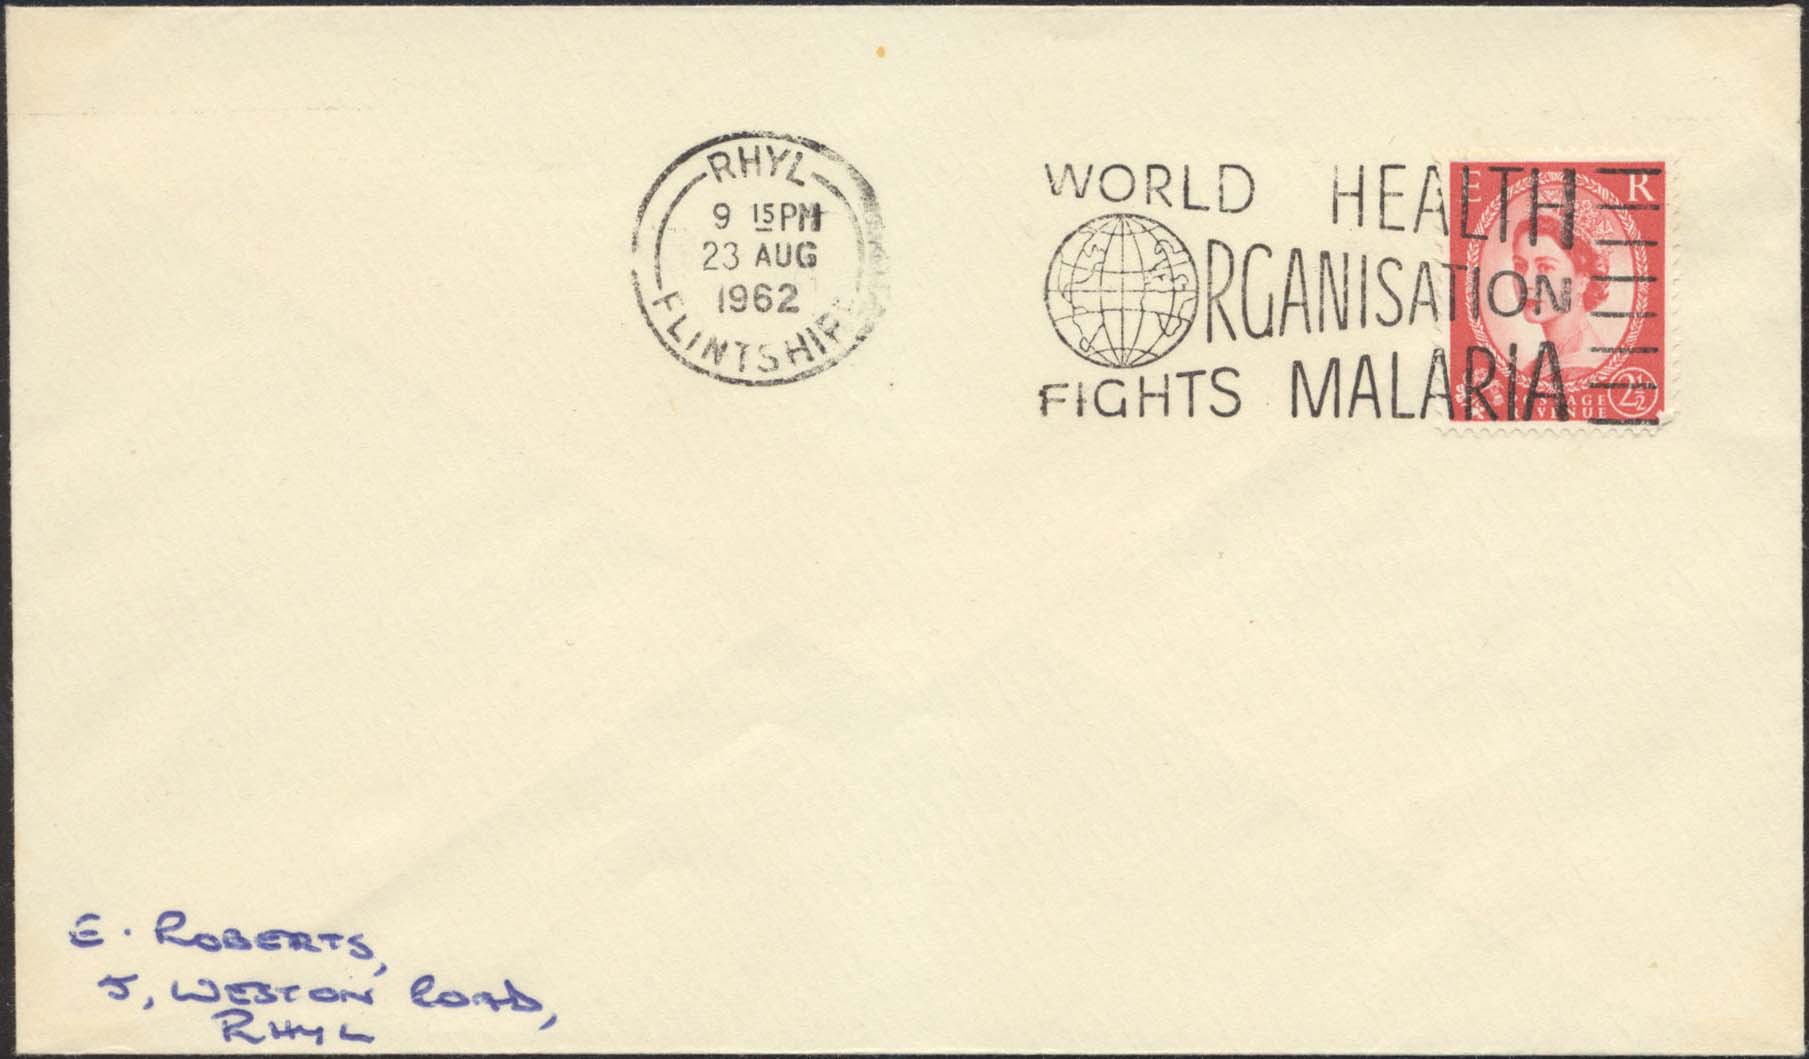 RHYL
9 15PM
23 AUG
1962
FLINTSHIRE
WORLD HEALTH
ORGANISATION
FIGHTS MALARIA
E R
POSTAGE 2½
REVENUE
E. ROBERTS,
5, WESTON ROAD,
RHYL